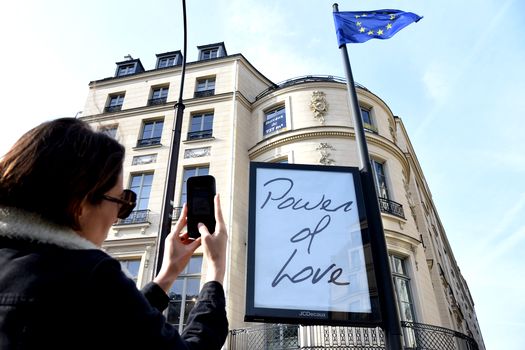 Power
of
Love
JCDecaux